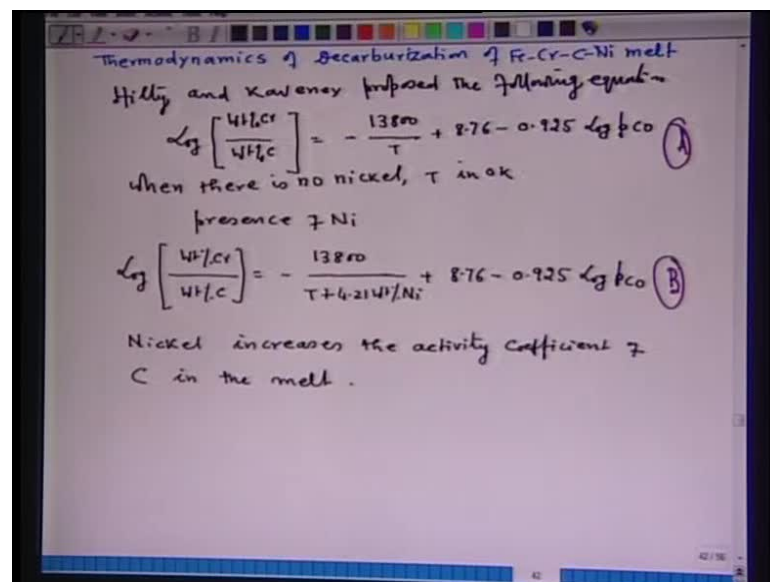 Thermodynamics of Decarburization of Fe-Cr-C-Ni melt
Hilty and Kaveney proposed the following equation
Log [wt%Cr / wt%C] = - 13800 / T + 8.76 - 0.925 Log pco (A)
when there is no nickel, T in ok
presence of Ni
Log [wt%Cr / wt%C] = - 13800 / T+4.21wt%Ni + 8.76 - 0.925 Log pco (B)
Nickel increases the activity coefficient of
C in the melt.
42